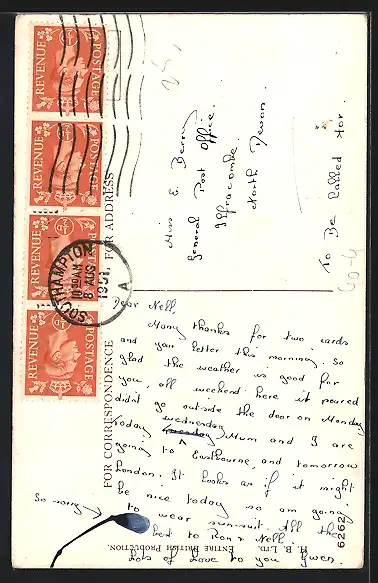 REVENUE POSTAGE
REVENUE POSTAGE
REVENUE POSTAGE
REVENUE POSTAGE
SOUTHAMPTON
10 30 AM
8 AUG
1951
A
FOR ADDRESS
Miss E. Berny
General Post Office.
Ilfracombe
North Devon.
To Be Called For.
60-4
FOR CORRESPONDENCE
Dear Nell,
Many thanks for two cards
and your letter this morning. So
glad the weather is good for
you, all weekend here it poured
didn't go outside the door on Monday
today wednesday Mum and I are
going to Eastbourne, and tomorrow
London. It looks as if it might
be nice today so am going
to wear sun-suit. All the
best to Ron & Nell
Lots of Love to you Gwen.
H. B. LTD.
ENTIRE BRITISH PRODUCTION.
62627